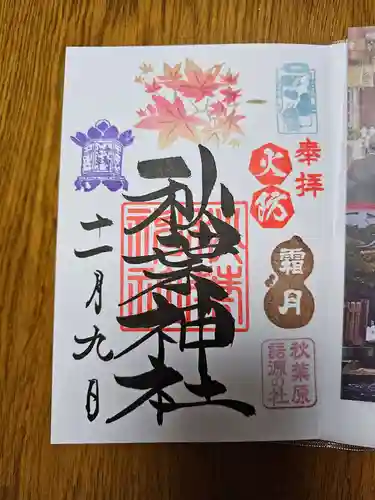 奉拝
火防
霜月
秋葉原
語源の社
秋葉神社
十一月九日